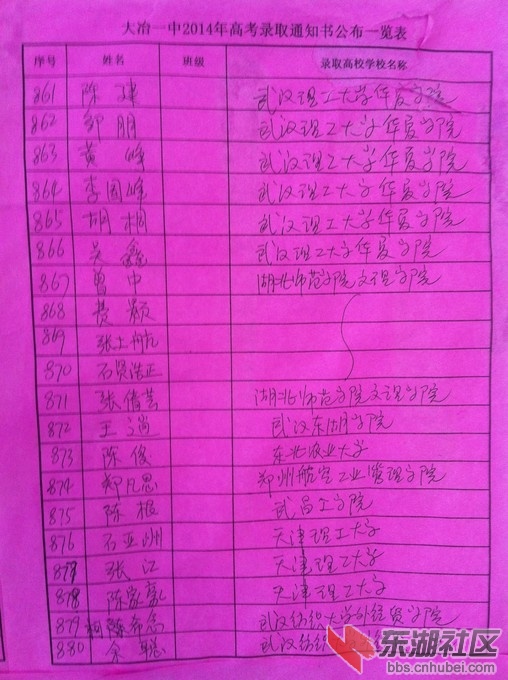 大冶一中2014年高考录取通知书公布一览表
序号 姓名 班级 录取高校学校名称
861 陈建 武汉理工大学华夏学院
862 邹朋 武汉理工大学华夏学院
863 黄峰 武汉理工大学华夏学院
864 李国峰 武汉理工大学华夏学院
865 胡桐 武汉理工大学华夏学院
866 吴鑫 武汉理工大学华夏学院
867 曾中 湖北师范学院文理学院
868 费颖
869 张上航
870 石贤浩正
871 张倩芸 湖北师范学院文理学院
872 王逍 武汉东湖学院
873 陈俊 东北农业大学
874 郑凡思 郑州航空工业管理学院
875 陈根 武昌工学院
876 石亚洲 天津理工大学
877 张江 天津理工大学
878 陈家 天津理工大学
879 陈希 武汉纺织大学外经贸学院
880 余聪 武汉纺织
东湖社区
bbs.cnhubei.com